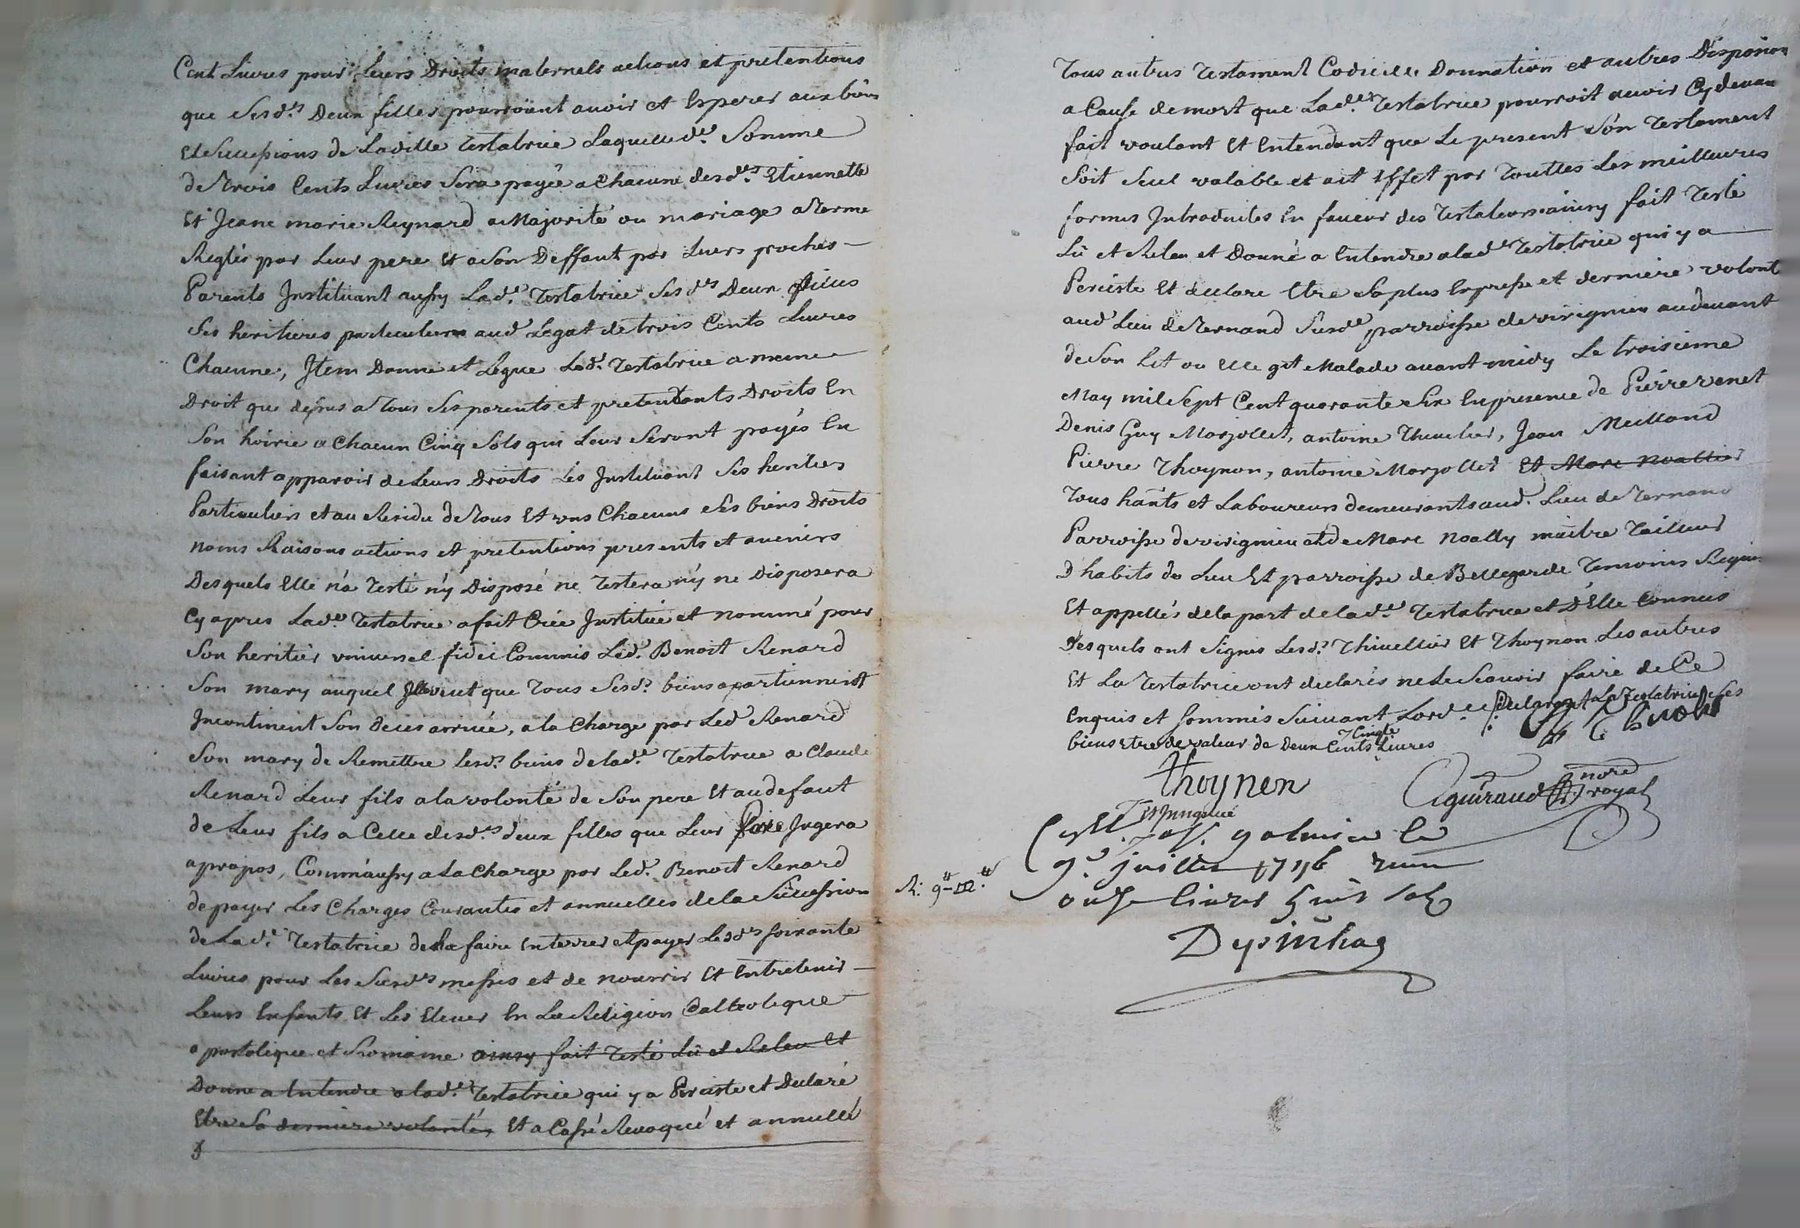 Cent Livres pour Leurs Droits maternels actions et pretentions
que Sesd.s Deux filles pourroient avoir et Esperer aux biens
Et Successions de Laditte Testatrice Laquelle d.e Somme
de trois Cents Livres Sera payée a Chacune desd.es Etiennette
Et Jeane marie Reynard a Majorité ou mariage a terme
Reglés par Leur pere Et a Son Deffaut par Leurs proches
Parents Instituant aussy Lad.e Testatrice Sesd.es Deux filles
Ses heritieres particulieres aud. Legat de trois Cents Livres
Chacune, Item Donne et Legue Lad.e Testatrice a meme
Droit que dessus a Tous Ses parents et pretendants Droits En
Son hoirie a Chacun Cinq Sols qui Leur Seront payés En
faisant apparoir de Leurs Droits Les Instituant Ses heritiers
Particuliers et au Residu de Tous Et uns Chacuns Ses biens Droits
noms Raisons actions et pretentions presents et avenirs
Desquels Elle n'a Testé n'y Disposé ne Testera n'y ne Disposera
Cy apres Lad.e Testatrice a fait Crée Institué et nommé pour
Son heritier universel fidei Commis Led. Benoit Renard
Son mary auquel Elle veut que Tous Sesd.s biens apartiennent
Incontinent Son deces arrivé, a la Charge par Led. Renard
Son mary de Remettre Lesd.s biens de lad.e Testatrice a Claude
Renard Leur fils a la volonté de Son pere Et au defaut
de Leur fils a Celle desd.es deux filles que Leur Pere Jugera
a propos, Comm'aussy a La Charge par Led. Benoit Renard
de payer Les Charges Courantes et annuelles de la Succession
de Lad.e Testatrice de La faire Enterrer et payer Lesd.es soixante
Livres pour Les Susd.es messes et de nourrir Et Entretenir
Leurs Enfants Et Les Elever En La Religion Catholique
apostolique et Romaine ainsy fait Testé Lû et Releu Et
Donné a Entendre a lad.e Testatrice qui y a Perciste et Declaré
Etre Sa derniere volonté, Et a Cassé Revoqué et annullé
Tous autres Testament Codicille Donnation et autres Disposion
a Cause de mort que Lad.e Testatrice pourroit avoir Cy devan
fait voulant Et Entendant que Le present Son Testament
Soit Seul valable et ait Effet par Touttes Les meilleures
formes Introduites En faveur des Testateurs ainsy fait Testé
Lû et Releu et Donné a Entendre a lad.e Testatrice qui y a
Perciste Et declare Etre Sa plus Expresse et derniere volont
aud. Lieu de Ternand Susd.e parroisse de virignieu au devant
de Son Lit ou Elle git Malade avant midy Le troisieme
May mil Sept Cent quarante Six En presence de Pierre venet
Denis Guy Marjollet, antoine Thivelier, Jean Meilland
Pierre Thoynon, antoine Marjollet Et Marc Noallier
Tous hants et Laboureurs demeurants aud. Lieu de Ternand
Parroisse de virignieu et de Marc Noally maitre Tailleur
D'habits du Lieu Et parroisse de Bellegarde Temoins Requis
Et appellés de la part de lad.e Testatrice et D'Elle Connus
Desquels ont Signés Lesd.s Thivellier Et Thoynon Les autres
Et La Testatrice ont declarés ne Le Scavoir faire de Ce
Enquis et Sommés Suivant Lord.e Declarant La Testatrice Ses
biens Etre de valeur de Deux Cents Cinqte Livres
Thoynon
nore
Aguiraud royal
galmier le
9.e juillet 1746 reçu
onze livres huit sols